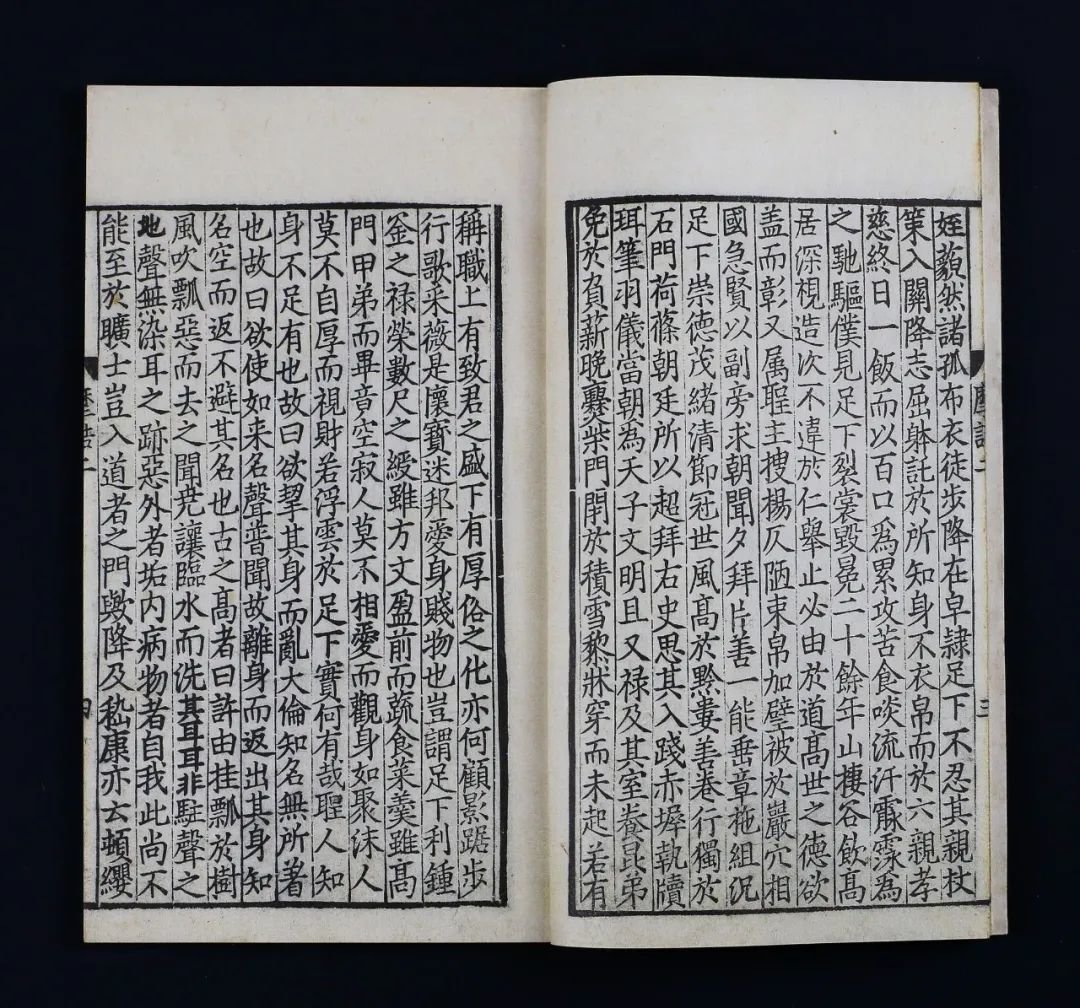 姪藐然諸孤布衣徒步降在皁隸足下不忍其親杖
策入關降志屈躰託於所知身不衣帛而於六親孝
慈終日一飯而以百口爲累攻苦食啖流汗霢霂爲
之馳驅僕見足下裂裳毀冕二十餘年山棲谷飲高
居深視造次不違於仁舉止必由於道高世之德欲
盖而彰又属聖主搜楊仄陋束帛加璧被於巖穴相
國急賢以副旁求朝聞夕拜片善一能垂章拖組況
足下崇德茂緒清節冠世風高於黔婁善卷行獨於
石門荷蓧朝廷所以超拜右史思其入踐赤墀執牘
珥筆羽儀當朝為天子文明且又禄及其室養昆弟
免於負薪晚爨柴門閇於積雪黎牀穿而未起若有
三
稱職上有致君之盛下有厚俗之化亦何顧影踞步
行歌采薇是懷寶迷邦愛身賤物也豈謂足下利鍾
釜之禄榮數尺之綬雖方丈盈前而蔬食菜羹雖高
門甲弟而畢竟空寂人莫不相愛而觀身如聚沫人
莫不自厚而視財若浮雲於足下實何有哉聖人知
身不足有也故曰欲挈其身而亂大倫知名無所著
也故曰欲使如来名聲普聞故離身而返出其身知
名空而返不避其名也古之高者曰許由挂瓢於樹
風吹瓢惡而去之聞尭讓臨水而洗其耳耳非駐聲之
地聲無染耳之跡惡外者垢内病物者自我此尚不
能至於曠士豈入道者之門歟降及嵇康亦云頓纓
摩詰二
四